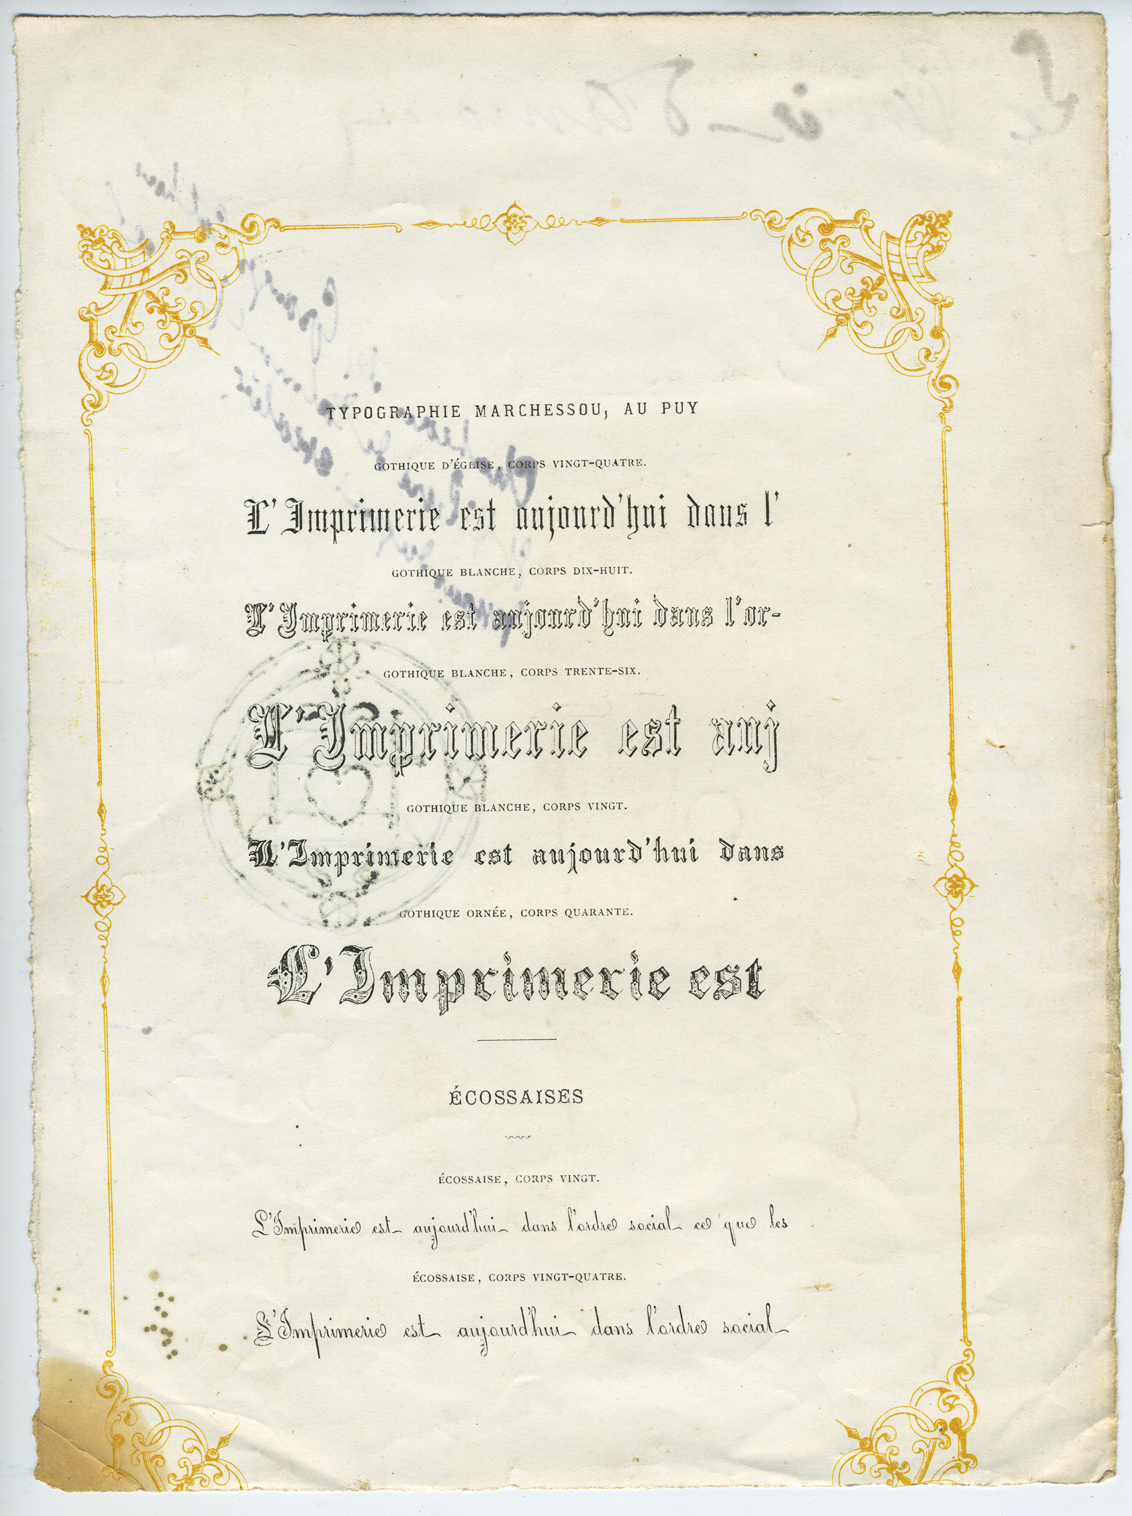 TYPOGRAPHIE MARCHESSOU, AU PUY
GOTHIQUE D'ÉGLISE, CORPS VINGT-QUATRE.
L'Imprimerie est aujourd'hui dans l'
GOTHIQUE BLANCHE, CORPS DIX-HUIT.
L'Imprimerie est aujourd'hui dans l'or-
GOTHIQUE BLANCHE, CORPS TRENTE-SIX.
L'Imprimerie est auj
GOTHIQUE BLANCHE, CORPS VINGT.
L'Imprimerie est aujourd'hui dans
GOTHIQUE ORNÉE, CORPS QUARANTE.
L'Imprimerie est
ÉCOSSAISES
ÉCOSSAISE, CORPS VINGT.
L'Imprimerie est aujourd'hui dans l'ordre social ce que les
ÉCOSSAISE, CORPS VINGT-QUATRE.
L'Imprimerie est aujourd'hui dans l'ordre social